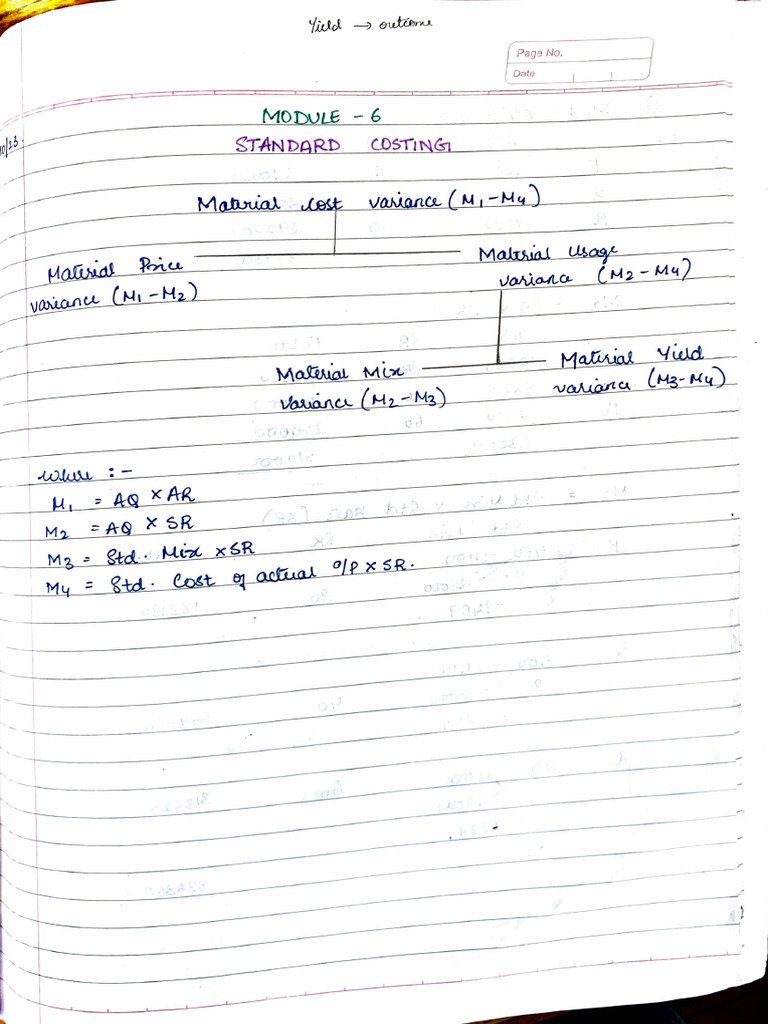 Yield → outcome
Page No.
Date
10/23.
MODULE - 6
STANDARD COSTING
Material Cost variance (M1 - M4)
Material Price variance (M1 - M2)
Material Usage variance (M2 - M4)
Material Mix variance (M2 - M3)
Material Yield variance (M3 - M4)
where : -
M1 = AQ × AR
M2 = AQ × SR
M3 = Std. Mix × SR
M4 = Std. Cost of actual o/p × SR.